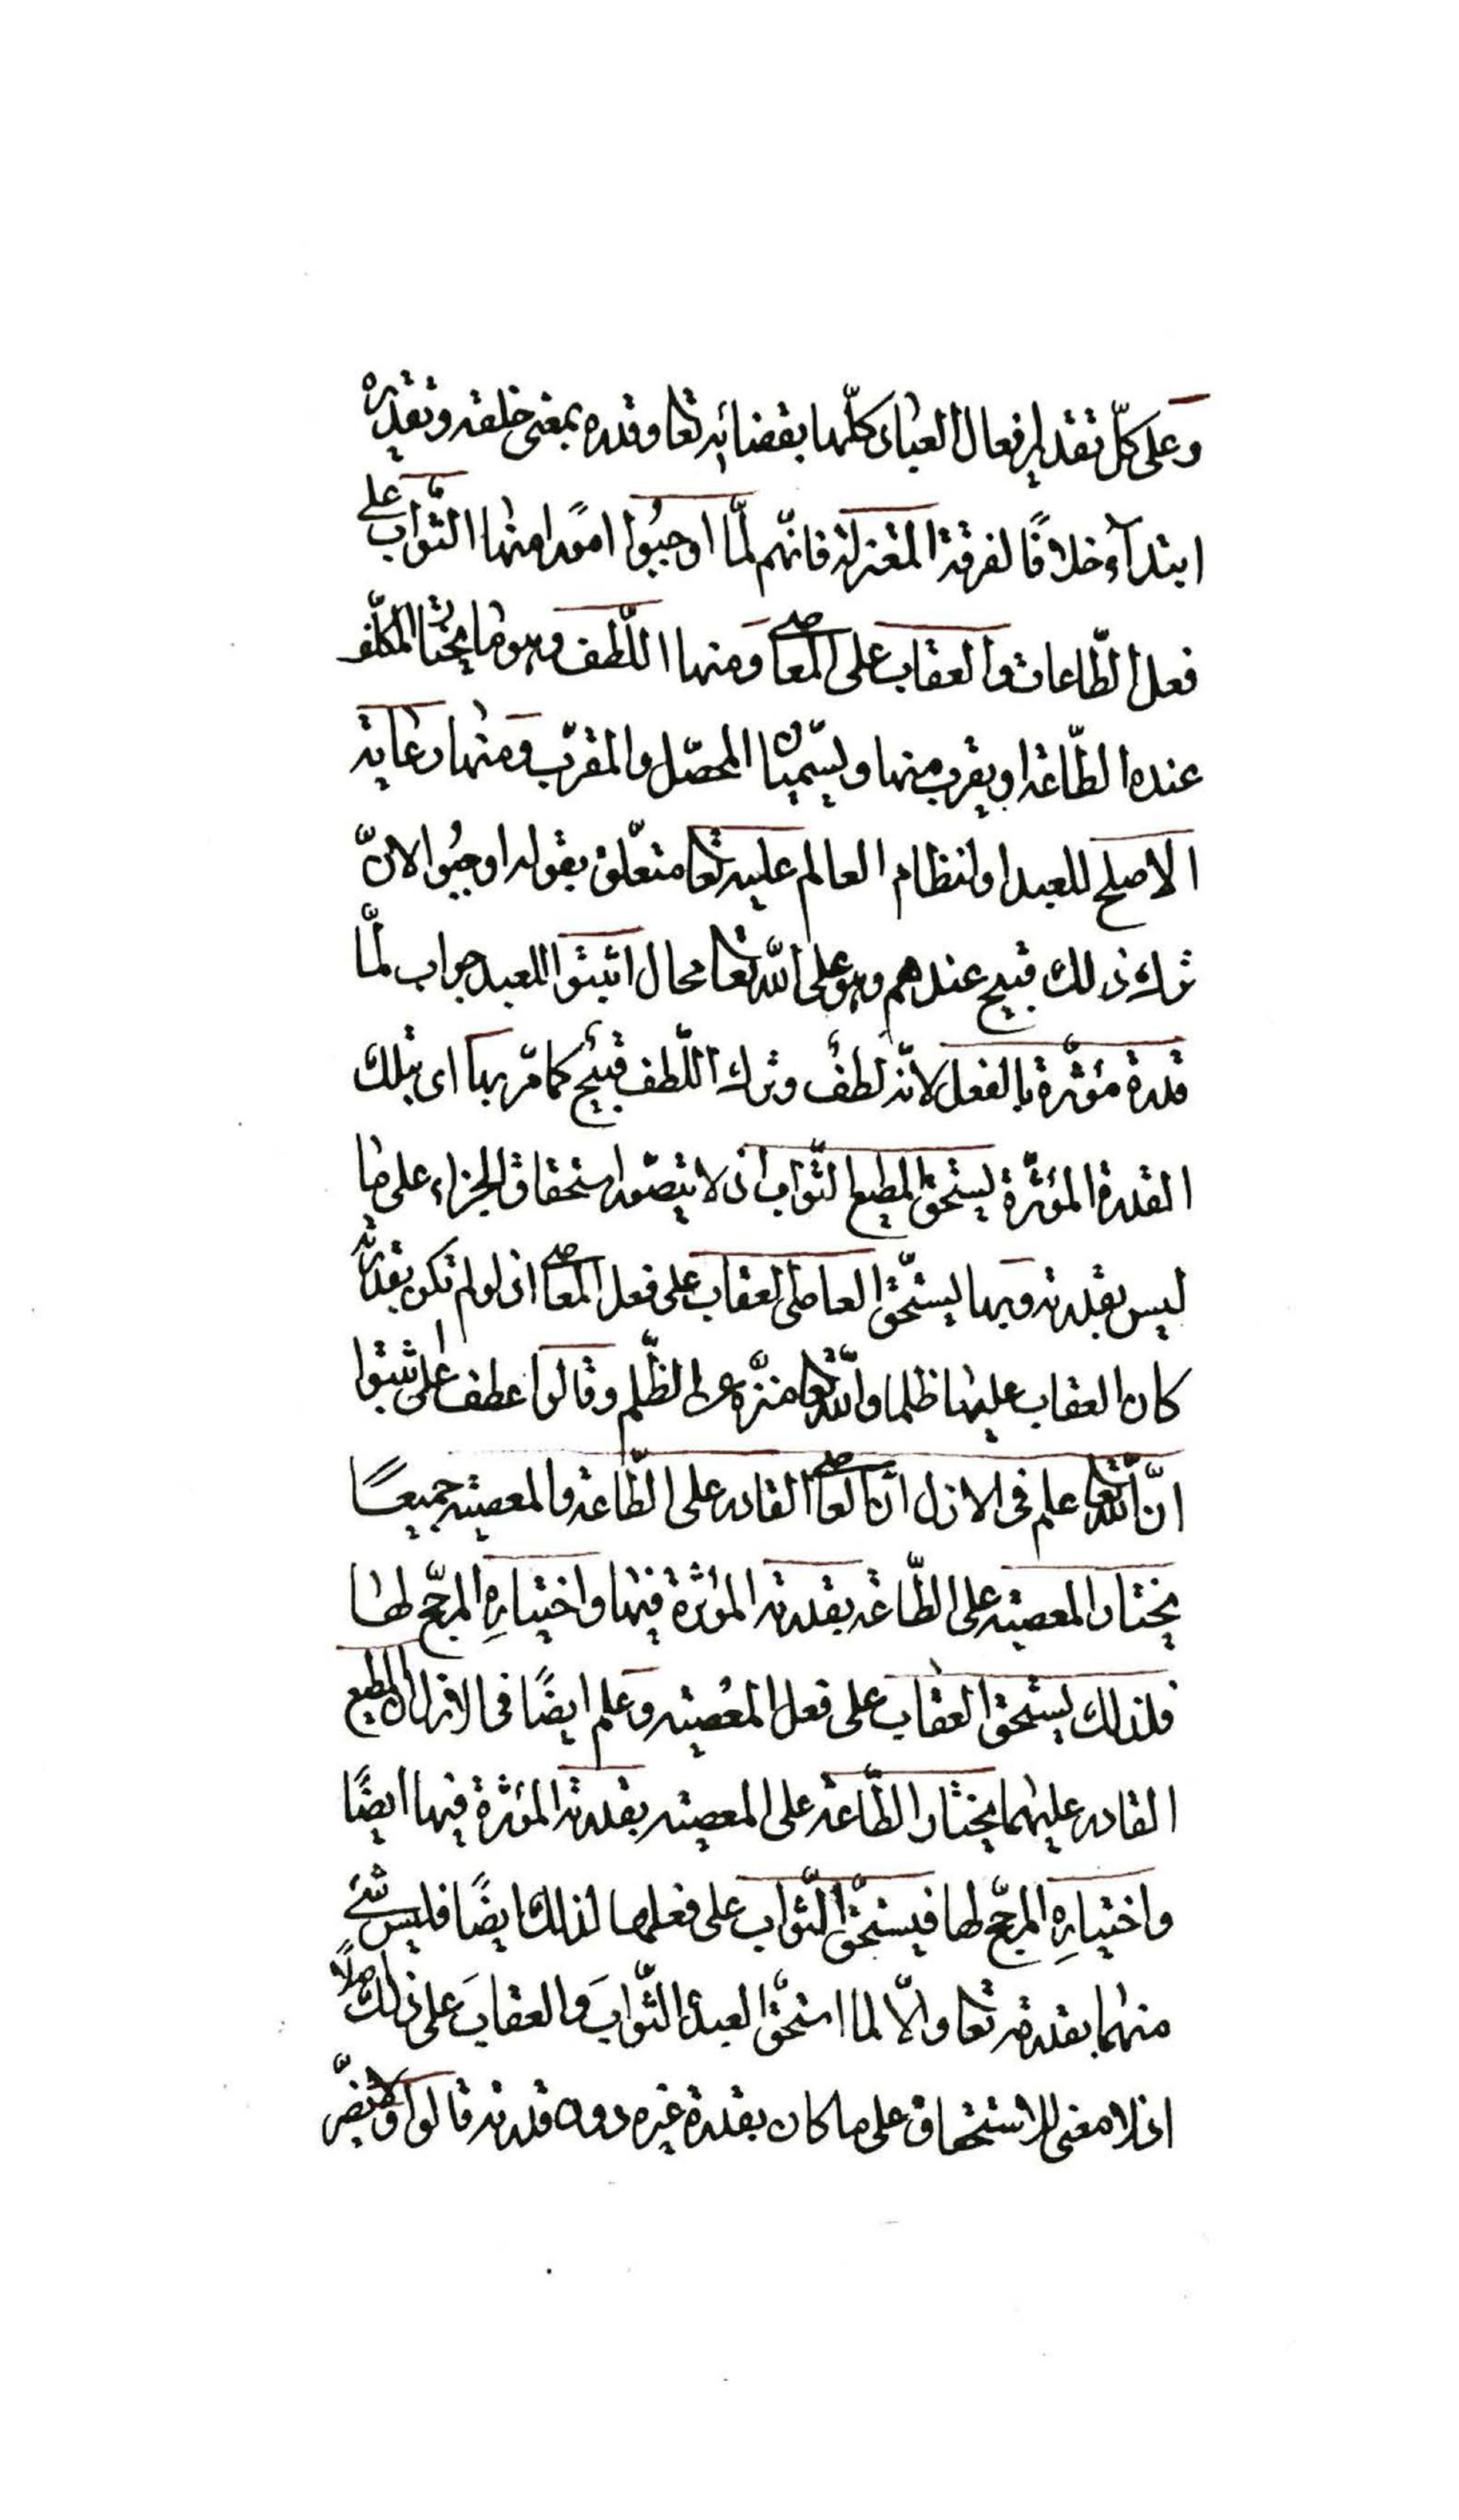 وعلى كلّ تقدير افعال العباد كلّها بقضائه تعا وقدره بمعنى خلقه وتقديره
ابتدآء خلافًا لفرقة المعتزلة فانّهم لمّا اوجبُوا امورًا منها الثّواب على
فعل الطّاعات والعقاب على المعاصى ومنها اللّطف وهو ما يختار المكلّف
عنده الطّاعة او يقرب منها ويسمّيان المحصّل والمقرّب ومنها رعاية
الاصلح للعبد او لنظام العالم عليه تعا متعلّق بقوله اوجبُوا لانّ
ترك ذلك قبيح عندهم وهو على الله تعا محال اثبتوا للعبد جواب لمّا
قدرة مؤثّرة بالفعل لانّه لطفٌ وترك اللّطف قبيح كما مرّ بها اى بتلك
القدرة المؤثّرة يستحقّ المطيع الثّواب اذ لا يتصوّر استحقاق الجزاء على ما
ليس بقدرته وبها يستحقّ العاصى العقاب على فعل المعاصى اذ لو لم تكن بقدرته
كان العقاب عليها ظلما والله تعا منزّه عن الظّلم وقالوا عطف على اثبتوا
انّ الله تعا علم فى الازل انّ العاصى القادر على الطّاعة والمعصية جميعًا
يختار المعصية على الطّاعة بقدرته المؤثرة فيها واختيارِه المرجّح لها
فلذلك يستحقّ العقاب على فعل المعصية وعلم ايضًا فى الازل انّ المطيع
القادر عليهما يختار الطّاعة على المعصية بقدرته المؤثرة فيها ايضًا
واختيارِه المرجّح لها فيستحقّ الثّواب على فعلها لذلك ايضًا فليس شئ
منهما بقدرته تعا والّا لما استحقّ العبد الثّوابَ والعقابَ على ذلك اصلًا
اذ لا معنى للاستحقاق على ما كان بقدرة غيره دون قدرته قالوا